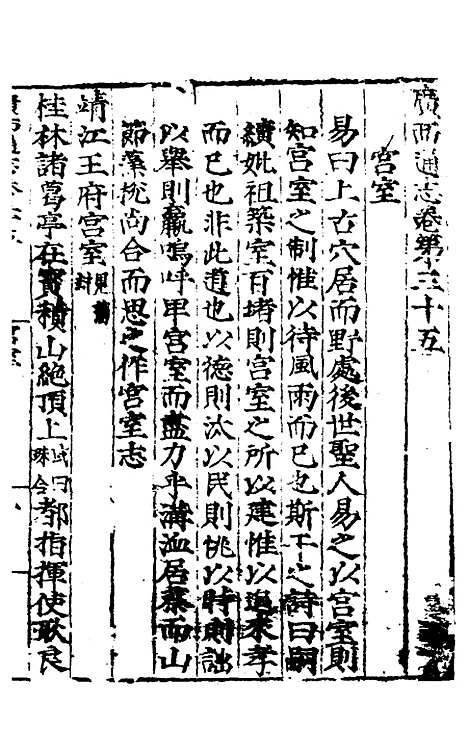 廣西通志卷第三十五
宮室
易曰上古穴居而野處後世聖人易之以宮室則
知宮室之制惟以待風雨而已也斯干之詩曰嗣
續妣祖築室百堵則宮室之所以建惟以追來孝
而已也非此道也以德則汰以民則佻以時則詘
以舉則羸嗚呼卑宮室而盡力乎溝洫居蔡而山
節藻梲尚合而思之作宮室志
靖江王府宮室見藩封
桂林諸葛亭在寶積山絕頂上 都指揮使耿良
宮室